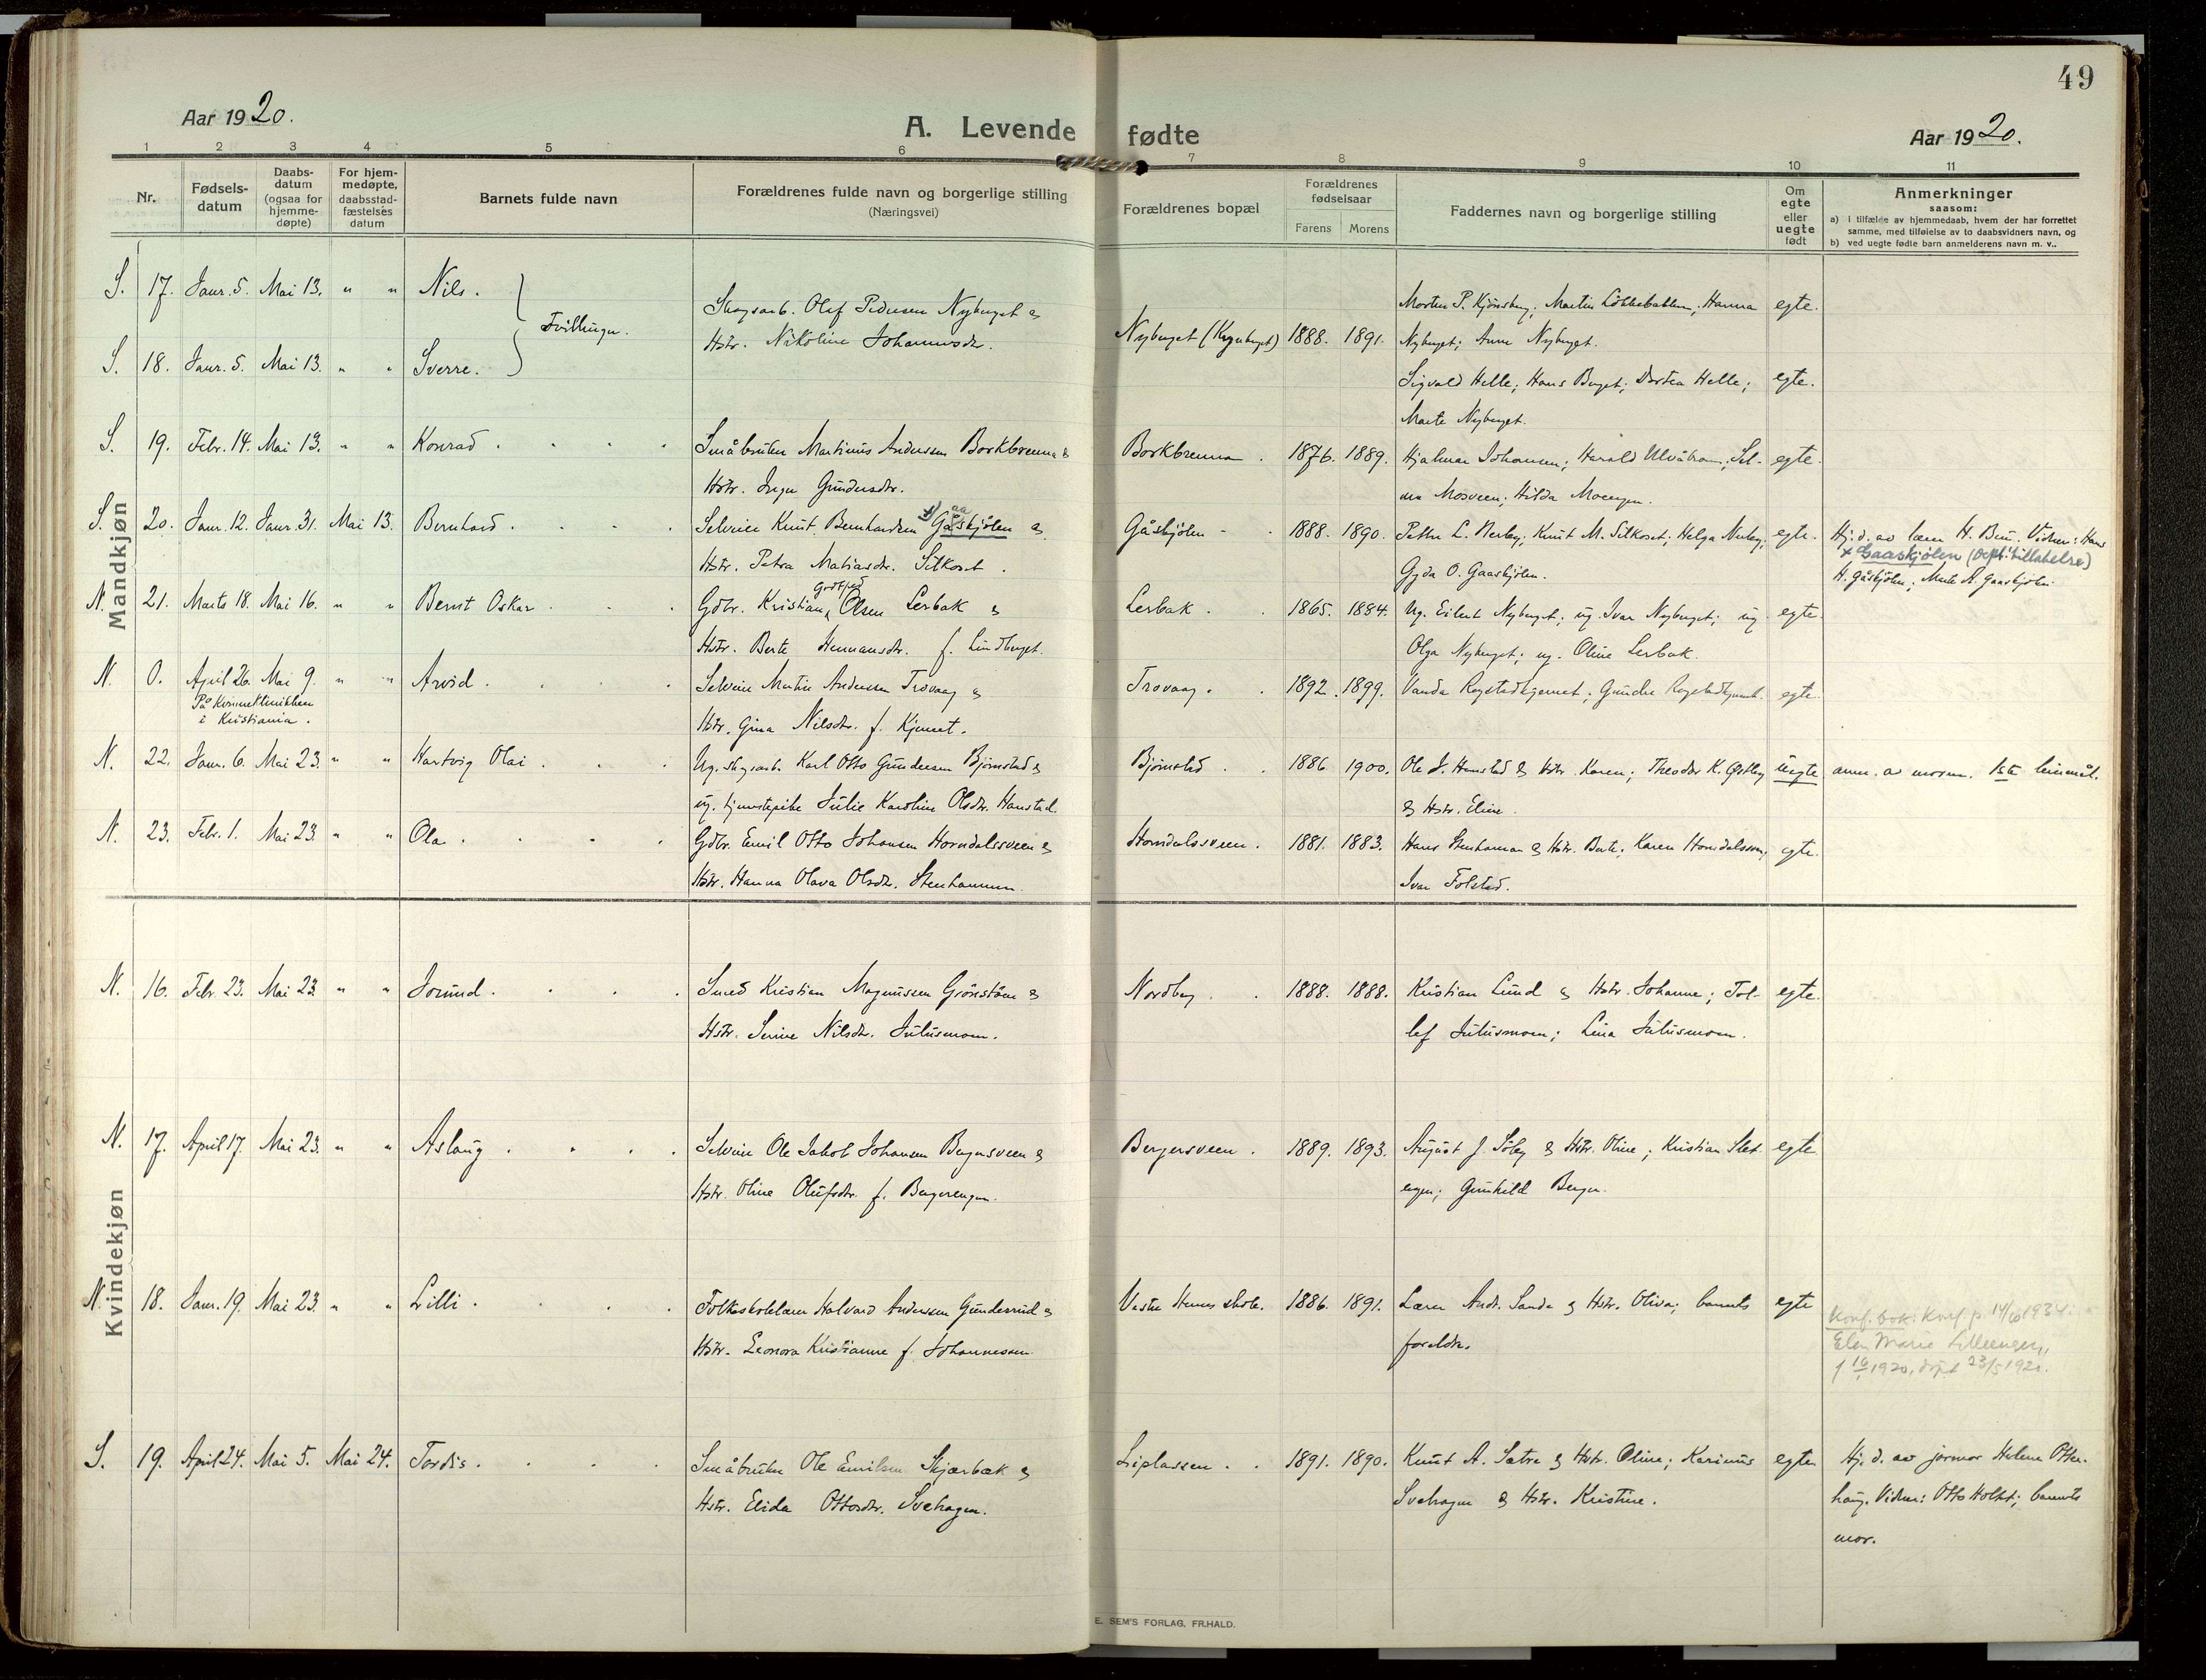 49
Aar 1920.
A. Levende fødte
Aar 1920.
1 2 3 4 5 6 7 8 9 10 11
Nr.
Fødsels-
datum
Daabs-
datum
(ogsaa for
hjemme-
døpte)
For hjem-
medøpte,
daabsstad-
fæstelses
datum
Barnets fulde navn
Forældrenes fulde navn og borgerlige stilling
(Næringsvei)
Forældrenes bopæl
Forældrenes
fødselsaar
Farens Morens
Faddernes navn og borgerlige stilling
Om
egte
eller
uegte
født
Anmerkninger
saasom:
a) i tilfælde av hjemmedaab, hvem der har forrettet
samme, med tilføielse av to daabsvidners navn, og
b) ved uegte fødte barn anmelderens navn m. v..
Mandkjøn
S. 17. Janr. 5. Mai 13. " " Nils.
Tvillinger.
Skogsarb. Olaf Pedersen Nyberget &
Hstr. Nikoline Johannesdtr.
Nyberget 1888. 1891.
Morten P. Kjønsberg; Martin Løkkebakken; Hanna egte.
Nyberget; Anne Nyberget.
S. 18. Janr. 5. Mai 13. " " Sverre.
Sigvald Helle; Hans Berget; Dortea Helle; egte.
Marte Nyberget.
S. 19. Febr. 14. Mai 13. " " Konrad
Småbruker Martinus Andersen Borkbrenna &
Hstr. Inga Gundersdtr.
Borkbrenna. 1876. 1889.
Hjalmar Johansen; Harald Ulvåbron; Sel- egte.
ma Mosveen; Hilda Moengen.
S. 20. Janr. 12. Janr. 31. Mai 13. Bernhard
Selveier Knut Bernhardsen Gåskjølen &
aa
Hstr. Petra Matiasdtr. Silkoset.
Gåskjølen 1888. 1890.
Petter L. Nerby; Knut M. Silkoset; Helga Nerby; egte.
Gyda O. Gaaskjølen.
Hj.d. av lærer H. Vidner: Hans
x Gaaskjølen (Dept.'s tillatelse)
H. Gåskjølen; Marte A. Gaaskjølen.
N. 21. Marts 18. Mai 16. " " Bernt Oskar
Godtfred
Gdbr. Kristian Olsen Lerbak &
Hstr. Berte Hermansdtr. f. Lindberget.
Lerbak. 1865. 1884.
Ug. Eilert Nyberget; ug. Ivar Nyberget; ug. egte.
Olga Nyberget; ug. Oline Lerbak.
N. 0. April 26. Mai 9. " " Arvid
På Kvinneklinikken
i Kristiania.
Selveier Martin Andersen Trovaag &
Hstr. Gina Nilsdtr. f. Kjernet.
Trovaag. 1892. 1899.
Vanda Rogstadkjernet; Gunder Rogstadkjernet. egte.
N. 22. Janr. 6. Mai 23. " " Hartvig Olai
Ug. skogsarb. Karl Otto Gundersen Bjørnstad &
ug. tjenestepike Julie Karoline Olsdtr. Hanstad.
Bjørnstad 1886. 1900.
Ole J. Hanstad & Hstr. Karen; Theodor K. Østby uegte
& Hstr. Eline.
anm. av moren. 1ste leiermål.
N. 23. Febr. 1. Mai 23. " " Ola
Gdbr. Emil Otto Johansen Horndalssveen &
Hstr. Hanna Olava Olsdtr. Stenhammer.
Horndalssveen. 1881. 1883.
Hans Stenhamar & Hstr. Berte; Karen Horndalssveen; egte.
Ivar Folstad.
Kvindekjøn
N. 16. Febr. 23. Mai 23. " " Jorund
Smed Kristian Magnussen Grønstøen &
Hstr. Serine Nilsdtr. Julusmoen.
Nordberg. 1888. 1888.
Kristian Lund & Hstr. Johanne; Tol- egte.
lef Julusmoen; Lina Julusmoen.
N. 17. April 17. Mai 23. " " Aslaug
Selveier Ole Jakob Johansen Bergersveen &
Hstr. Oline Olufsdtr. f. Bergerengen.
Bergersveen. 1889. 1893.
August J. Søby & Hstr. Oline; Kristian Slet- egte
engen; Gunhild Berger.
N. 18. Janr. 19. Mai 23. " " Lilli
Folkeskolelærer Halvard Andersen Gunderrud &
Hstr. Leonora Kristianne f. Johannessen.
Vestre Hernes skole. 1886. 1891.
Lærer Andr. Sande & Hstr. Oliva; barnets egte
foreldre.
Konf. bok: Konf. p. 14/10 1934:
Elen Marie Lilleengen,
f 19/1 1920, døpt 23/5 1920.
S. 19. April 24. Mai 5. Mai 24. Tordis
Småbruker Ole Emilsen Skjærbæk &
Hstr. Elida Ottosdtr. Svehagen.
Liplassen 1891. 1890.
Knut A. Sætre & Hstr. Oline; Karinus egte.
Svehagen & Hstr. Kristine.
Hj. d. av jormor Helene Otter-
haug. Vidner: Otto Holtet; barnets
mor.
E. SEM'S FORLAG, FR.HALD.